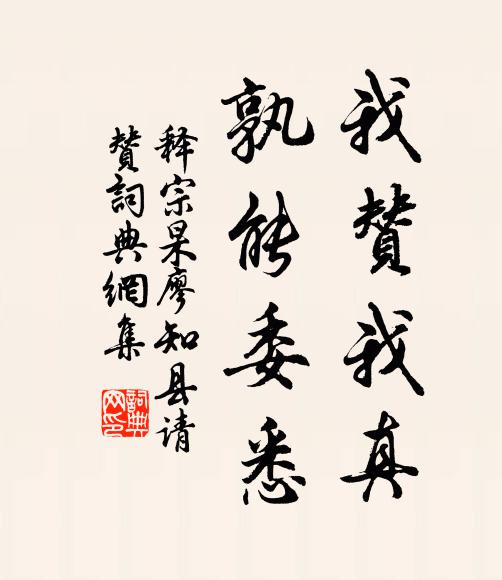 我赞我真
孰能委悉
释宗杲廖知县请
赞词典網集
詞典
网印